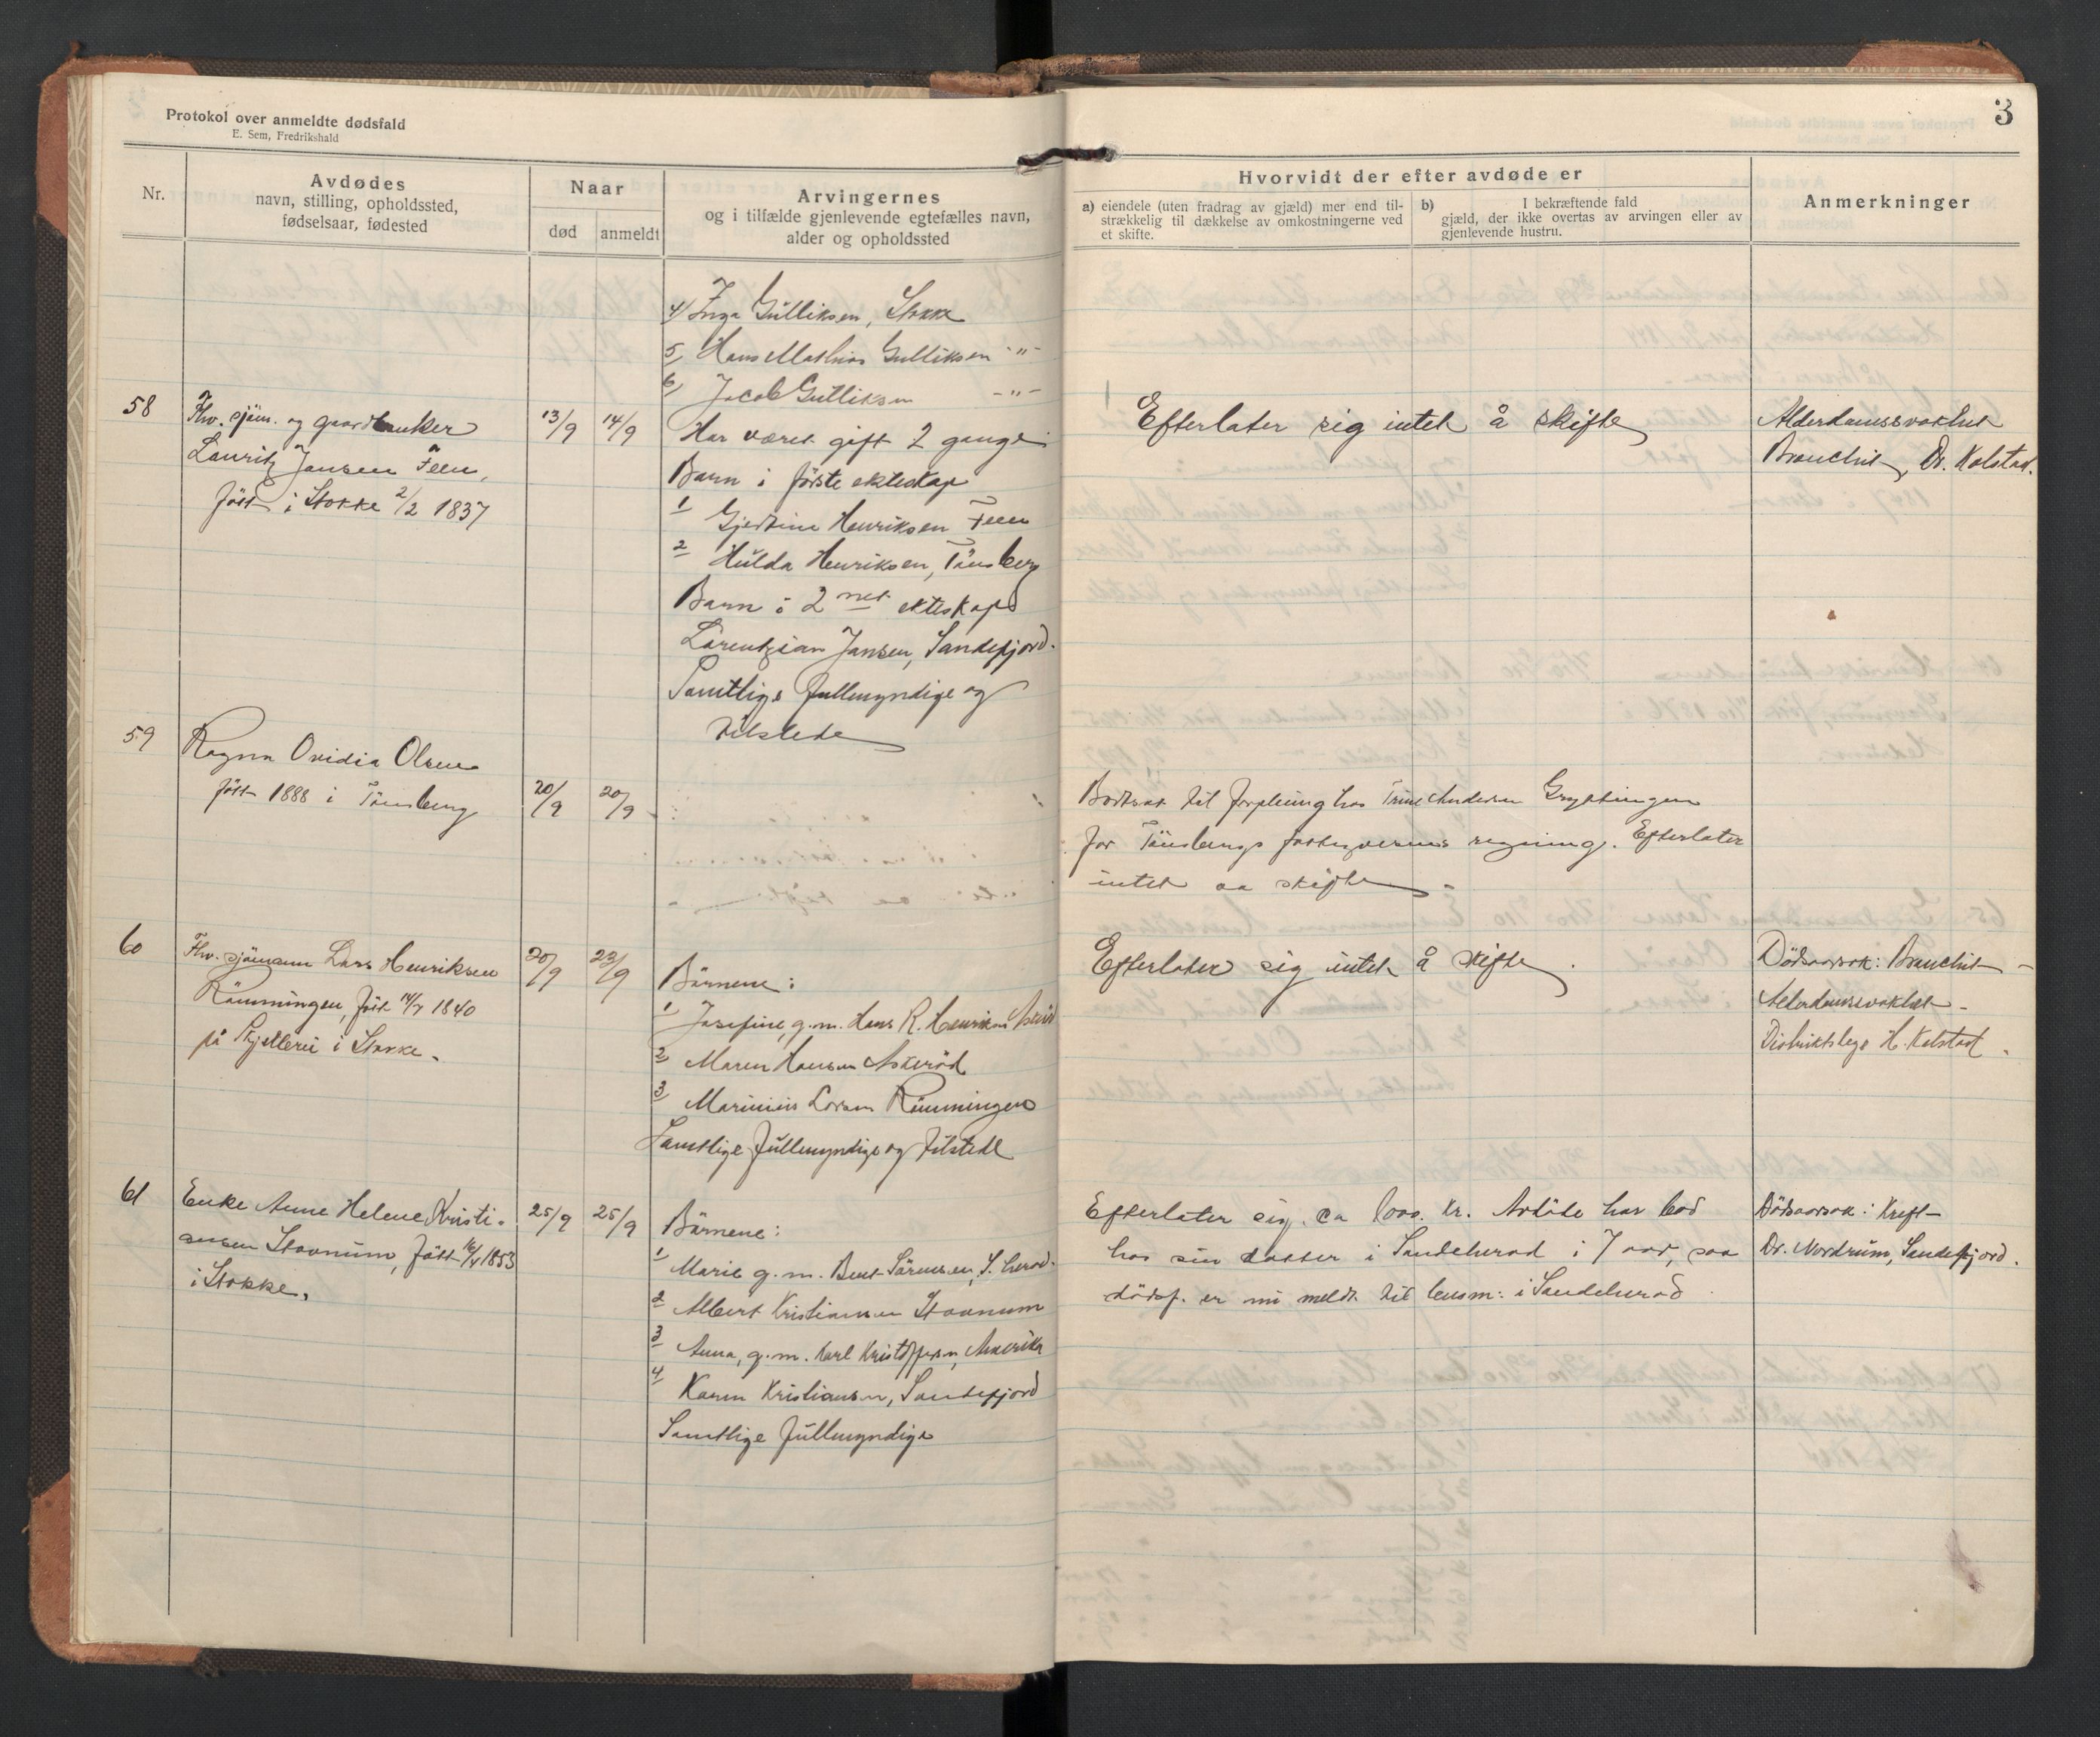 Protokol over anmeldte dødsfald
E. Sem, Fredrikshald
Nr.
Avdødes
navn, stilling, opholdssted,
fødselsaar, fødested
Naar
død
anmeldt
Arvingernes
og i tilfælde gjenlevende egtefælles navn,
alder og opholdssted
4) Inga Gulliksen, Stokke
5) Hans Mathias Gulliksen -"-
6) Jacob Gulliksen -"-
58
Fhv. sjöm. og gaardbruker
Lauritz Jansen Feen,
födt i Stokke 2/2 1837
13/9
14/9
Har været gift 2 gange
Barn i første ekteskap
1 Gjertine Henriksen Feen
2 Hulda Henriksen, Tönsberg
Barn i 2 net ekteskap
Larentzian Jansen, Sandefjord.
Samtlige fullmyndige og
tilstede
59
Ragna Ovidia Olsen
født 1888 i Tönsberg
20/9
20/9
60
Fhv. sjömann Lars Henriksen
Römmingen, født 14/7 1840
på Skjellerei i Stokke.
20/9
23/9
Börnene:
1 Josefine, g.m. Hans R. Henriksen
2 Maren Hansen Askeröd
3 Marinius Larsen Römmingen
Samtlige fullmyndige og tilstede
61
Enke Anne Helene Kristi-
ansen Stovnum, født 16/4 1853
i Stokke.
25/9
25/9
Börnene:
1 Marie g.m. Bent Sörensen, S. herad.
2 Albert Kristiansen Stovnum
3 Anna, g.m. Karl Kristoffersen, Amerika
4 Karen Kristiansen, Sandefjord
Samtlige fullmyndige
3
Hvorvidt der efter avdøde er
a) eiendele (uten fradrag av gjæld) mer end til-
strækkelig til dækkelse av omkostningerne ved
et skifte.
b) I bekræftende fald
gjæld, der ikke overtas av arvingen eller av
gjenlevende hustru.
Anmerkninger
Efterlater sig intet å skifte
Alderdomssvakhet
Bronchit, Dr. Kolstad.
Bortsat til forpleining hos Trine Andersen Gryttingen
for Tönsbergs fattigvesens regning. Efterlater
intet aa skifte
Efterlater sig intet å skifte.
Dödsaarsak: Bronchit -
Alderdomssvakhet -
Distriktslege H. Kolstad.
Efterlater sig ca 1000. kr. Avdöde har bod
hos sin datter i Sandeherad i 7 aar, saa
dödsf. er nu meldt til lensm: i Sandeherad
Dödsaarsak: Kreft -
Dr. Nordrum, Sandefjord.